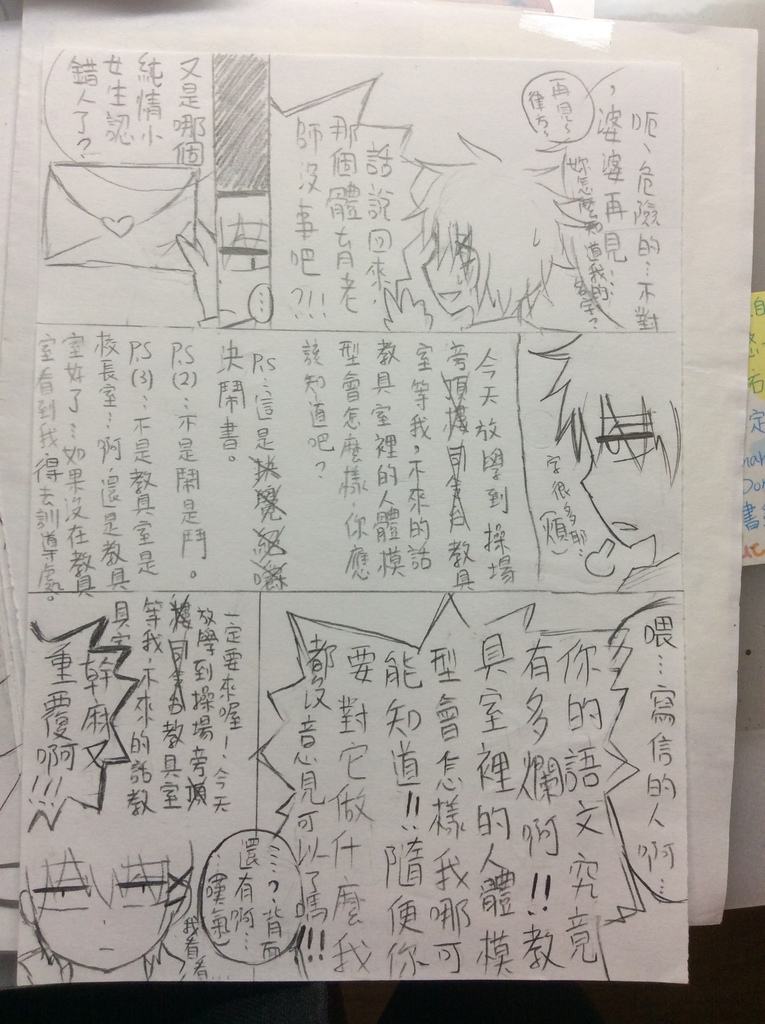 呃、危險的…不對
，婆婆再見！…
妳怎麼知道我的
名字？
再見～
律方～
話說回來，
那個體育老
師沒事吧?!!!
…
又是哪個
純情小
女生認
錯人了？
字很多耶…
（煩）
今天放學到操場
旁頂樓
教具
室等我，不來的話
教具室裡的人體模
型會怎麼樣，你應
該知道吧？
P.S.…這是
決鬧書。
P.S(2)…不是鬧是鬥。
P.S(3)…不是教具室是
校長室…啊，還是教具
室好了…如果沒在教具
室看到我，得去訓導處。
喂…寫信的人啊…
你的語文究竟
有多爛啊!!教
具室裡的人體模
型會怎樣我哪可
能知道!!隨便你
要對它做什麼我
都沒意見可以了嗎!!!
……？背面
還有啊…
…（嘆氣）
我看看…
一定要來喔！今天
放學到操場旁頂
樓
教具室
等我，不來的話教
具室
幹麻又
重覆啊!!!